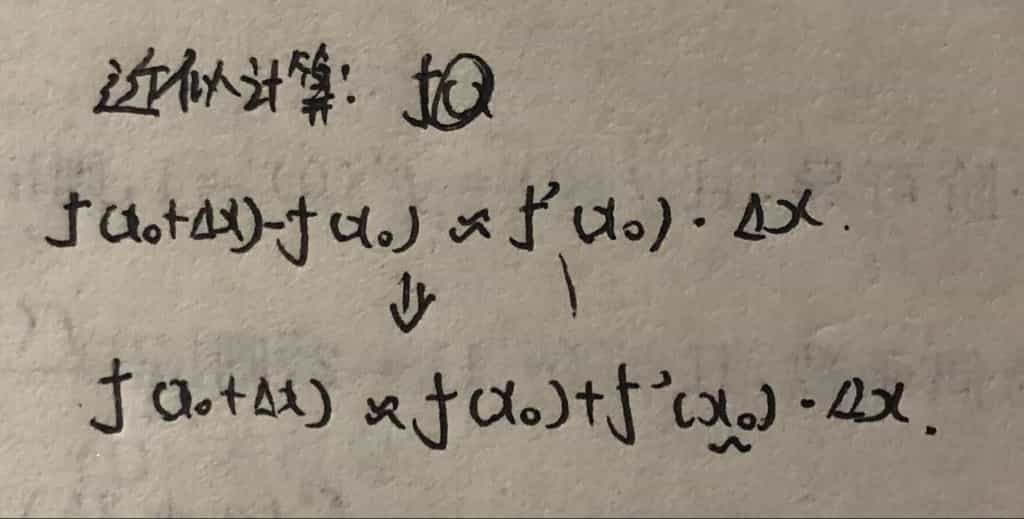 近似计算:
f(x₀+Δx)-f(x₀) ≈ f'(x₀)·Δx.
⇓
f(x₀+Δx) ≈ f(x₀)+f'(x₀)·Δx.